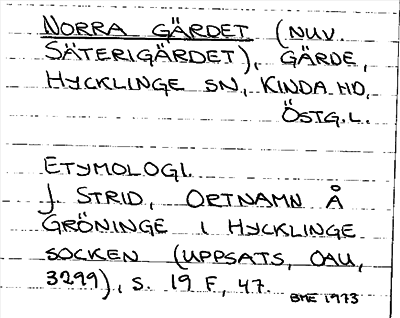 NORRA GÄRDET (NUV.
SÄTERIGÄRDET), GÄRDE,
HYCKLINGE SN, KINDA HD,
ÖSTG.L.
ETYMOLOGI.
J. STRID, ORTNAMN Å
GRÖNINGE I HYCKLINGE
SOCKEN (UPPSATS, OAU,
3299), S. 19 F, 47.
BME 1973